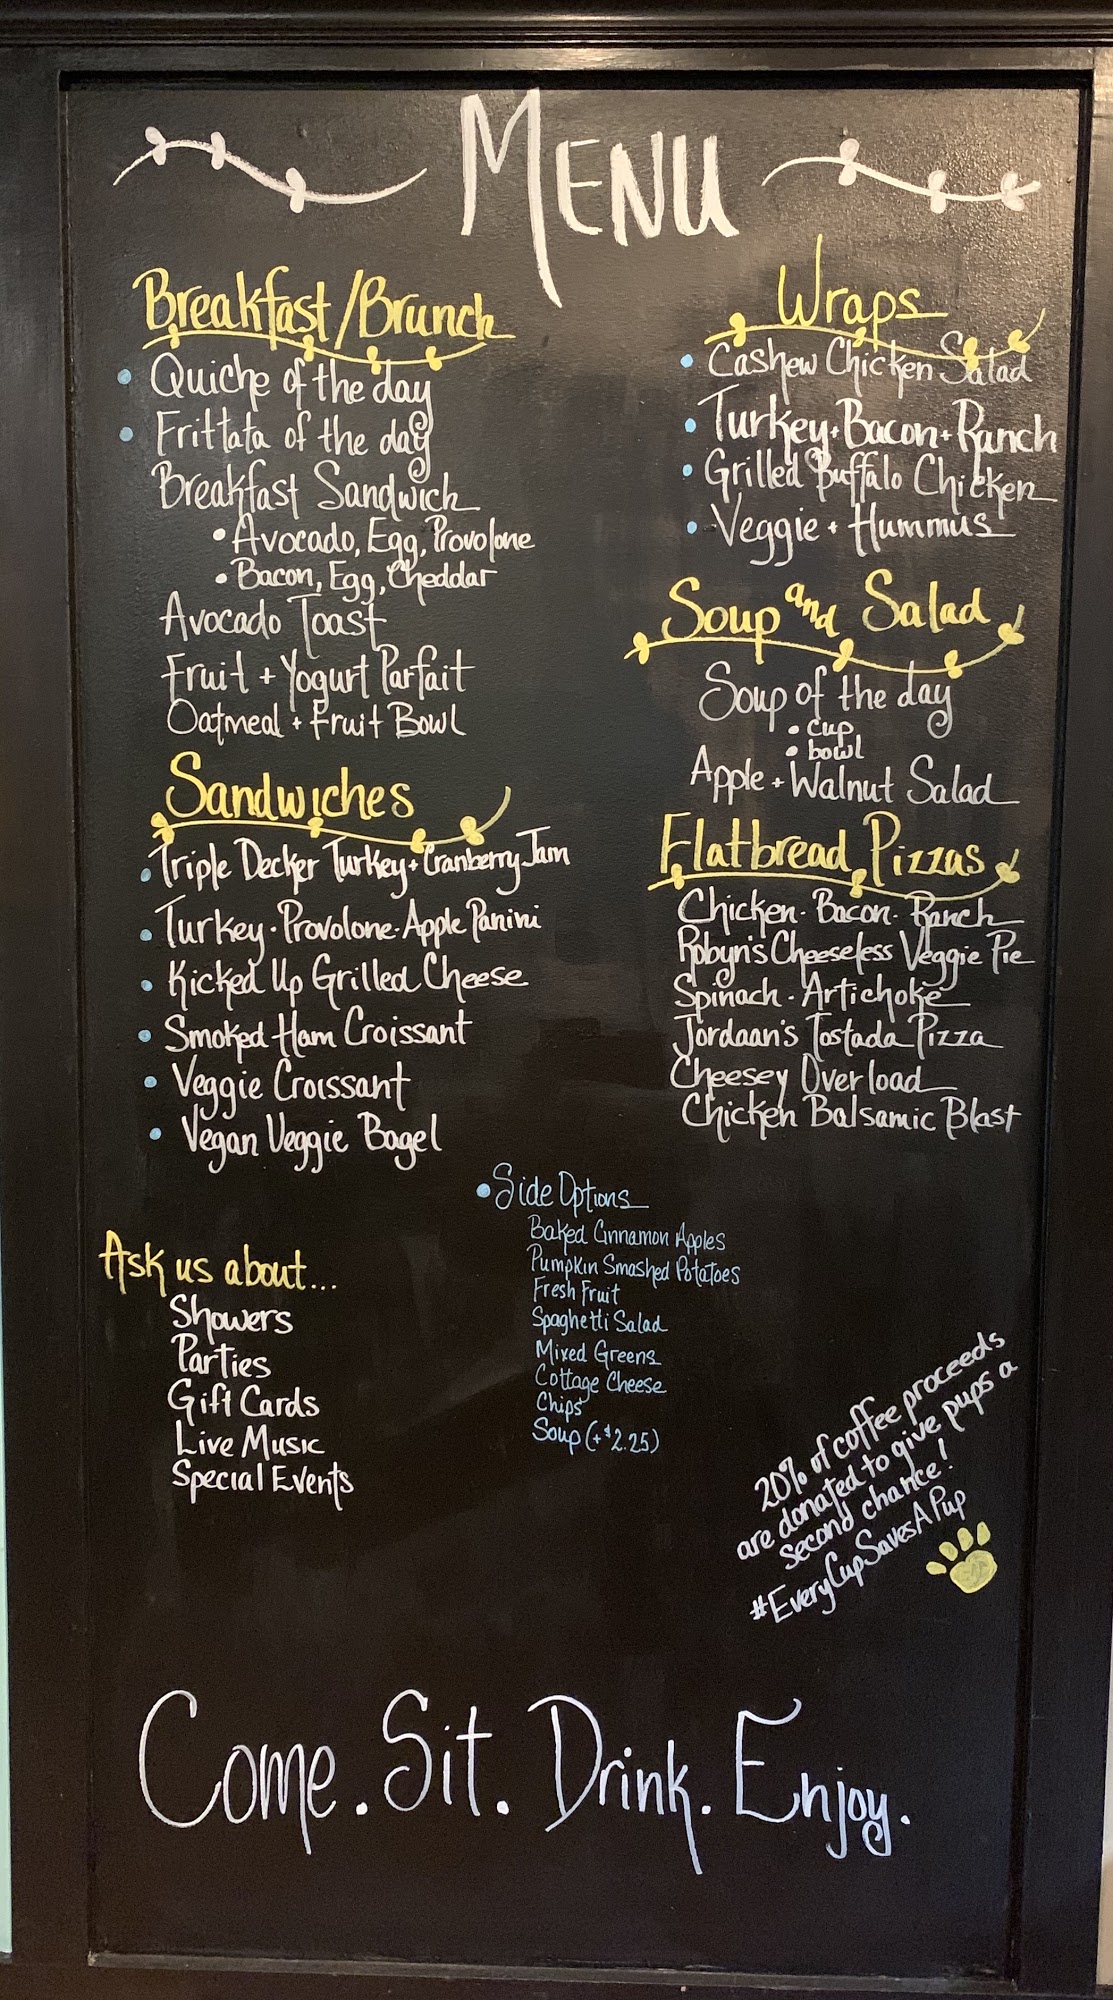 MENU
Breakfast/Brunch
• Quiche of the day
• Frittata of the day
Breakfast Sandwich
• Avocado, Egg, Provolone
• Bacon, Egg, Cheddar
Avocado Toast
Fruit + Yogurt Parfait
Oatmeal + Fruit Bowl
Sandwiches
• Triple Decker Turkey + Cranberry Jam
• Turkey · Provolone · Apple Panini
• Kicked Up Grilled Cheese
• Smoked Ham Croissant
• Veggie Croissant
• Vegan Veggie Bagel
Wraps
• Cashew Chicken Salad
• Turkey + Bacon + Ranch
• Grilled Buffalo Chicken
• Veggie + Hummus
Soup and Salad
Soup of the day
• cup
• bowl
Apple + Walnut Salad
Flatbread Pizzas
Chicken · Bacon · Ranch
Robyn's Cheeseless Veggie Pie
Spinach · Artichoke
Jordaan's Tostada Pizza
Cheesey Overload
Chicken Balsamic Blast
• Side Options
Baked Cinnamon Apples
Pumpkin Smashed Potatoes
Fresh Fruit
Spaghetti Salad
Mixed Greens
Cottage Cheese
Chips
Soup (+$2.25)
Ask us about...
Showers
Parties
Gift Cards
Live Music
Special Events
20% of coffee proceeds
are donated to give pups a
second chance!
#EveryCupSavesAPup
Come. Sit. Drink. Enjoy.